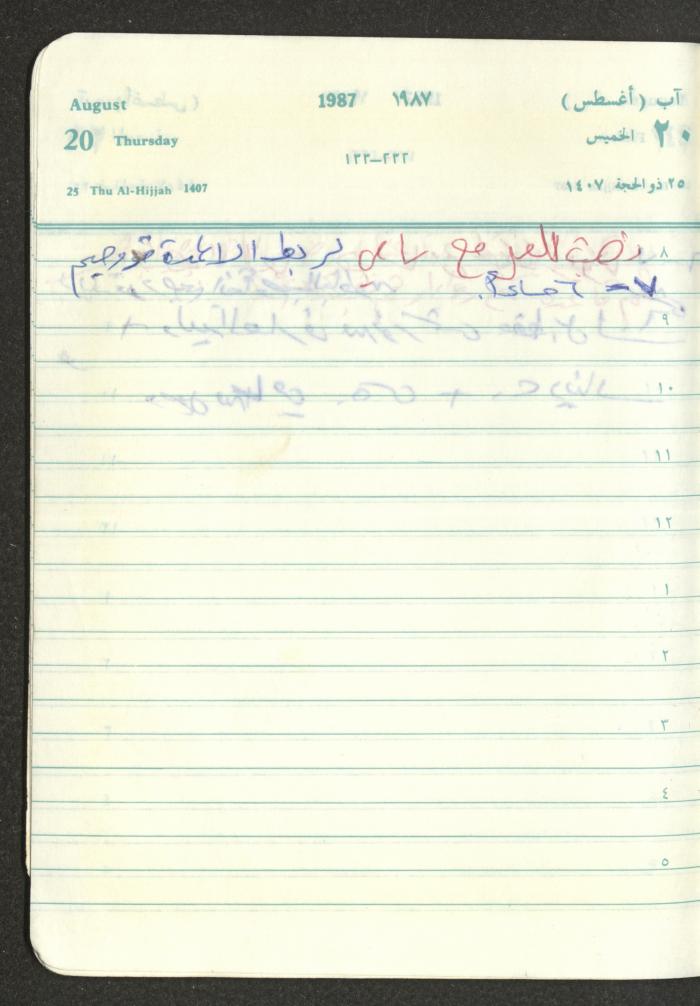 August 1987 ١٩٨٧ آب (أغسطس)
20 Thursday ٢٠ الخميس
٢٣٢–١٣٣
25 Thu Al-Hijjah 1407 ٢٥ ذو الحجة ١٤٠٧
٨ مع سامي لربط الاعمدة
٧ - ٦ مساءً
٩
١٠
١١
١٢
١
٢
٣
٤
٥